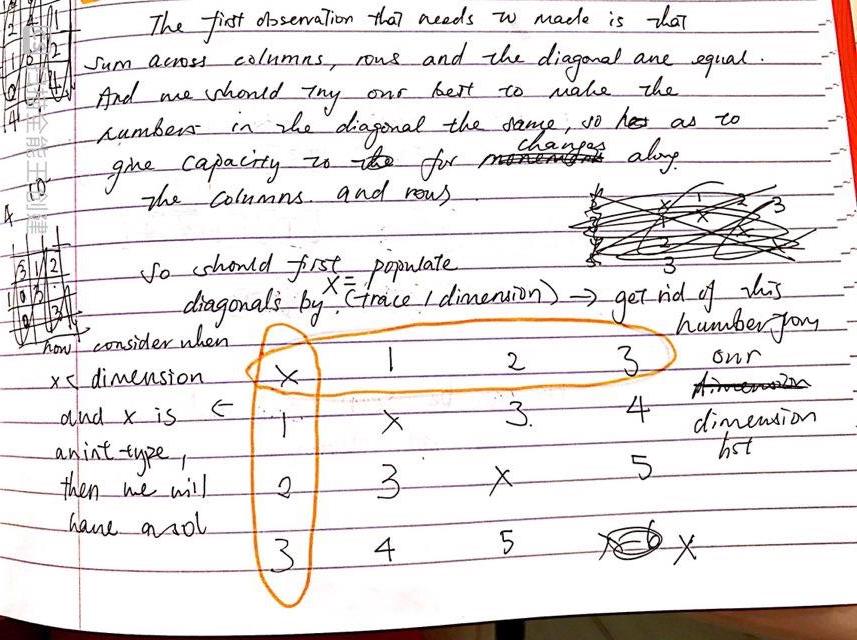 The first observation that needs to made is that
sum across columns, rows and the diagonal are equal.
And we should try our best to make the
numbers in the diagonal the same, so as to
give capacity to for changes along
the columns. and rows.
So should first populate
diagonals by x = (trace / dimension) → get rid of this
number from
our
dimension
list
now consider when
x < dimension
and x is ←
an int type,
then we will
have a sol
x 1 2 3
1 x 3 4
2 3 x 5
3 4 5 x